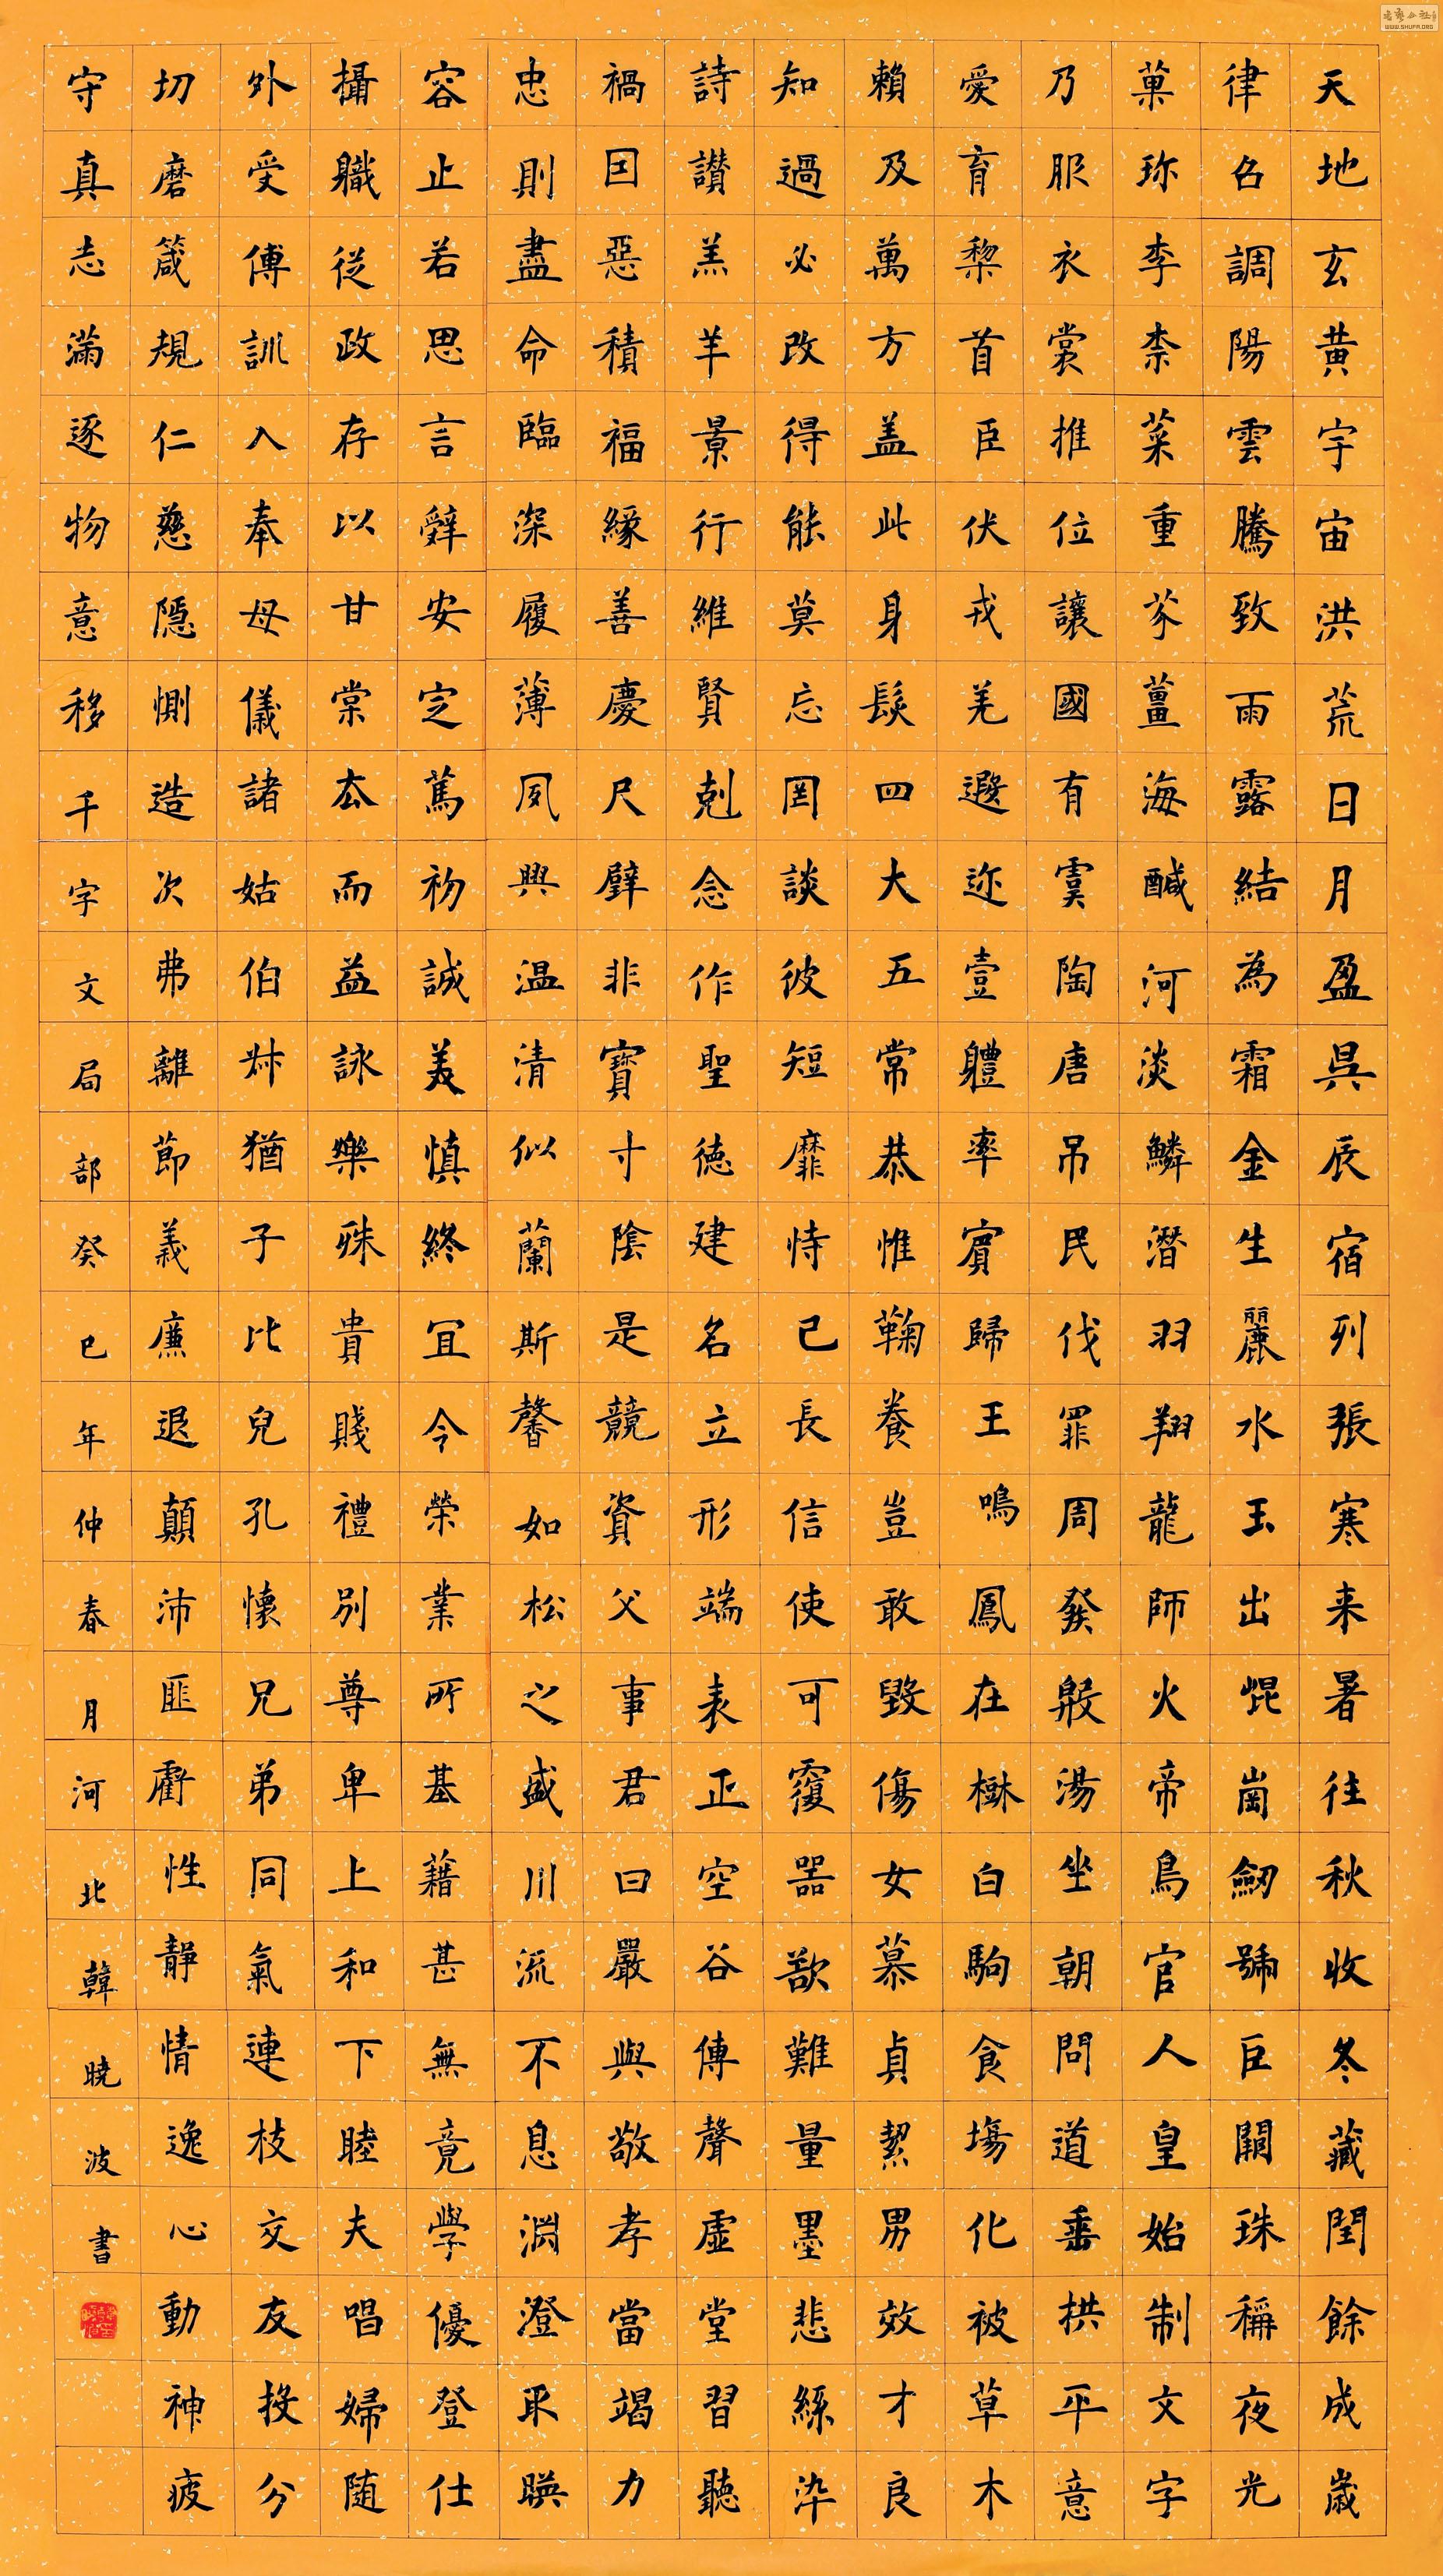 天地玄黄宇宙洪荒日月盈吳辰宿列張寒来暑往秋收冬藏閏餘成歲
律吕調陽雲騰致雨露結為霜金生麗水玉出崐崗劔號巨闕珠稱夜光
菓珎李柰菜重芥薑海醎河淡鱗潛羽翔龍師火帝鳥官人皇始制文字
乃服衣裳推位讓國有虞陶唐吊民伐罪周發殷湯坐朝問道垂拱平意
愛育黎首臣伏戎羌遐迩壹體率賓歸王鳴鳳在樹白駒食場化被草木
賴及萬方盖此身髮四大五常恭惟鞠養豈敢毀傷女慕貞絜男效才良
知過必改得能莫忘罔談彼短靡恃己長信使可覆器欲難量墨悲絲染
詩讃羔羊景行維賢剋念作聖德建名立形端表正空谷傳聲虛堂習聽
禍因惡積福緣善慶尺璧非寶寸陰是競資父事君曰嚴與敬孝當竭力
忠則盡命臨深履薄夙興温清似蘭斯馨如松之盛川流不息淵澄取暎
容止若思言辭安定篤初誠美慎終宜令榮業所基藉甚無竟學優登仕
攝職從政存以甘棠去而益詠樂殊貴賤禮別尊卑上和下睦夫唱婦随
外受傅訓入奉母儀諸姑伯叔猶子比兒孔懷兄弟同氣連枝交友投分
切磨箴規仁慈隱惻造次弗離節義廉退顛沛匪虧性靜情逸心動神疲
守真志滿逐物意移千字文局部癸巳年仲春月河北韓曉波書
WWW.SHUFA.ORG